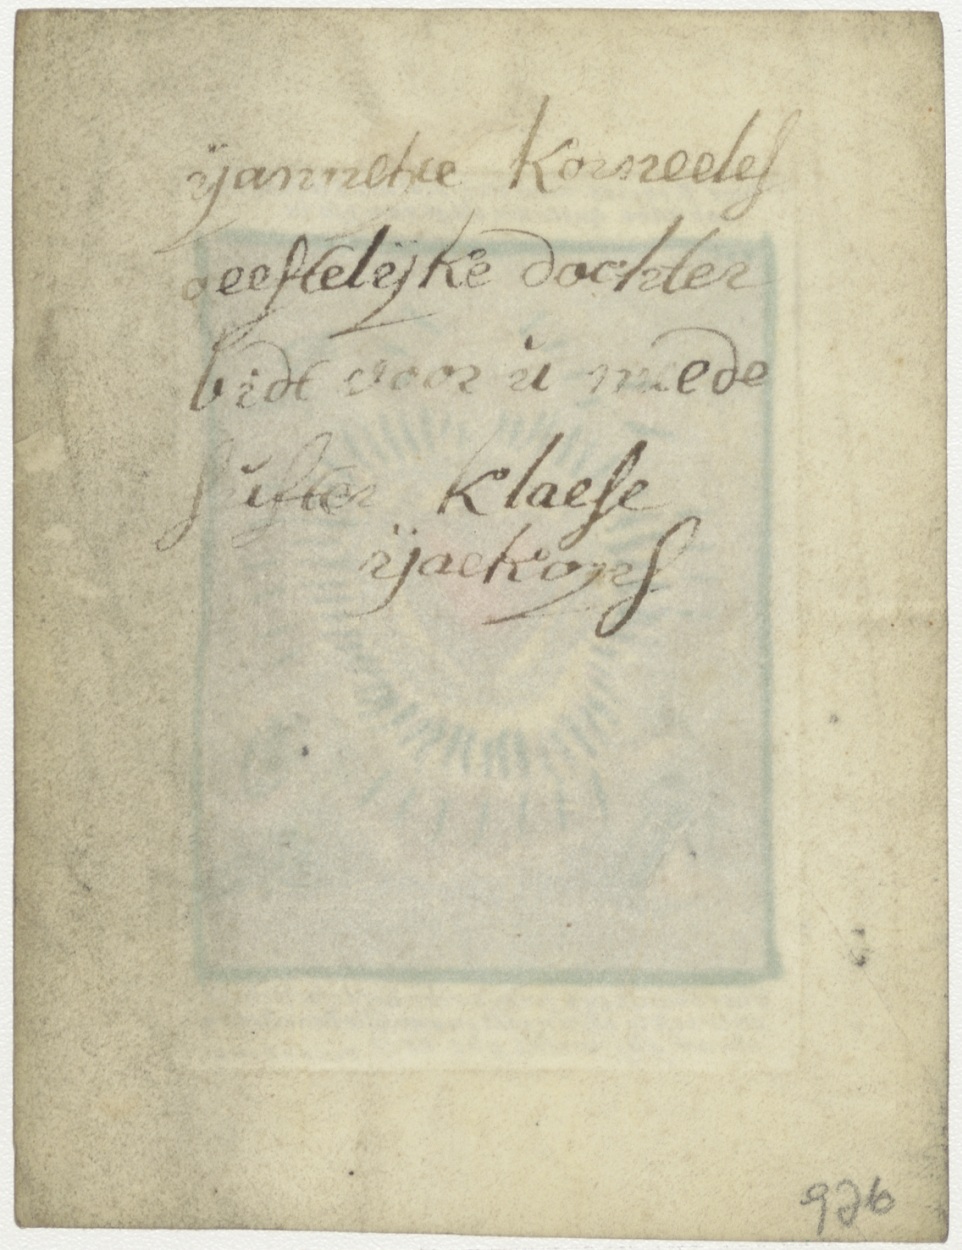 ÿannetie Korneeles
geestelÿke dochter
bidt voor u meede
suster Klaese
ÿaekops
926